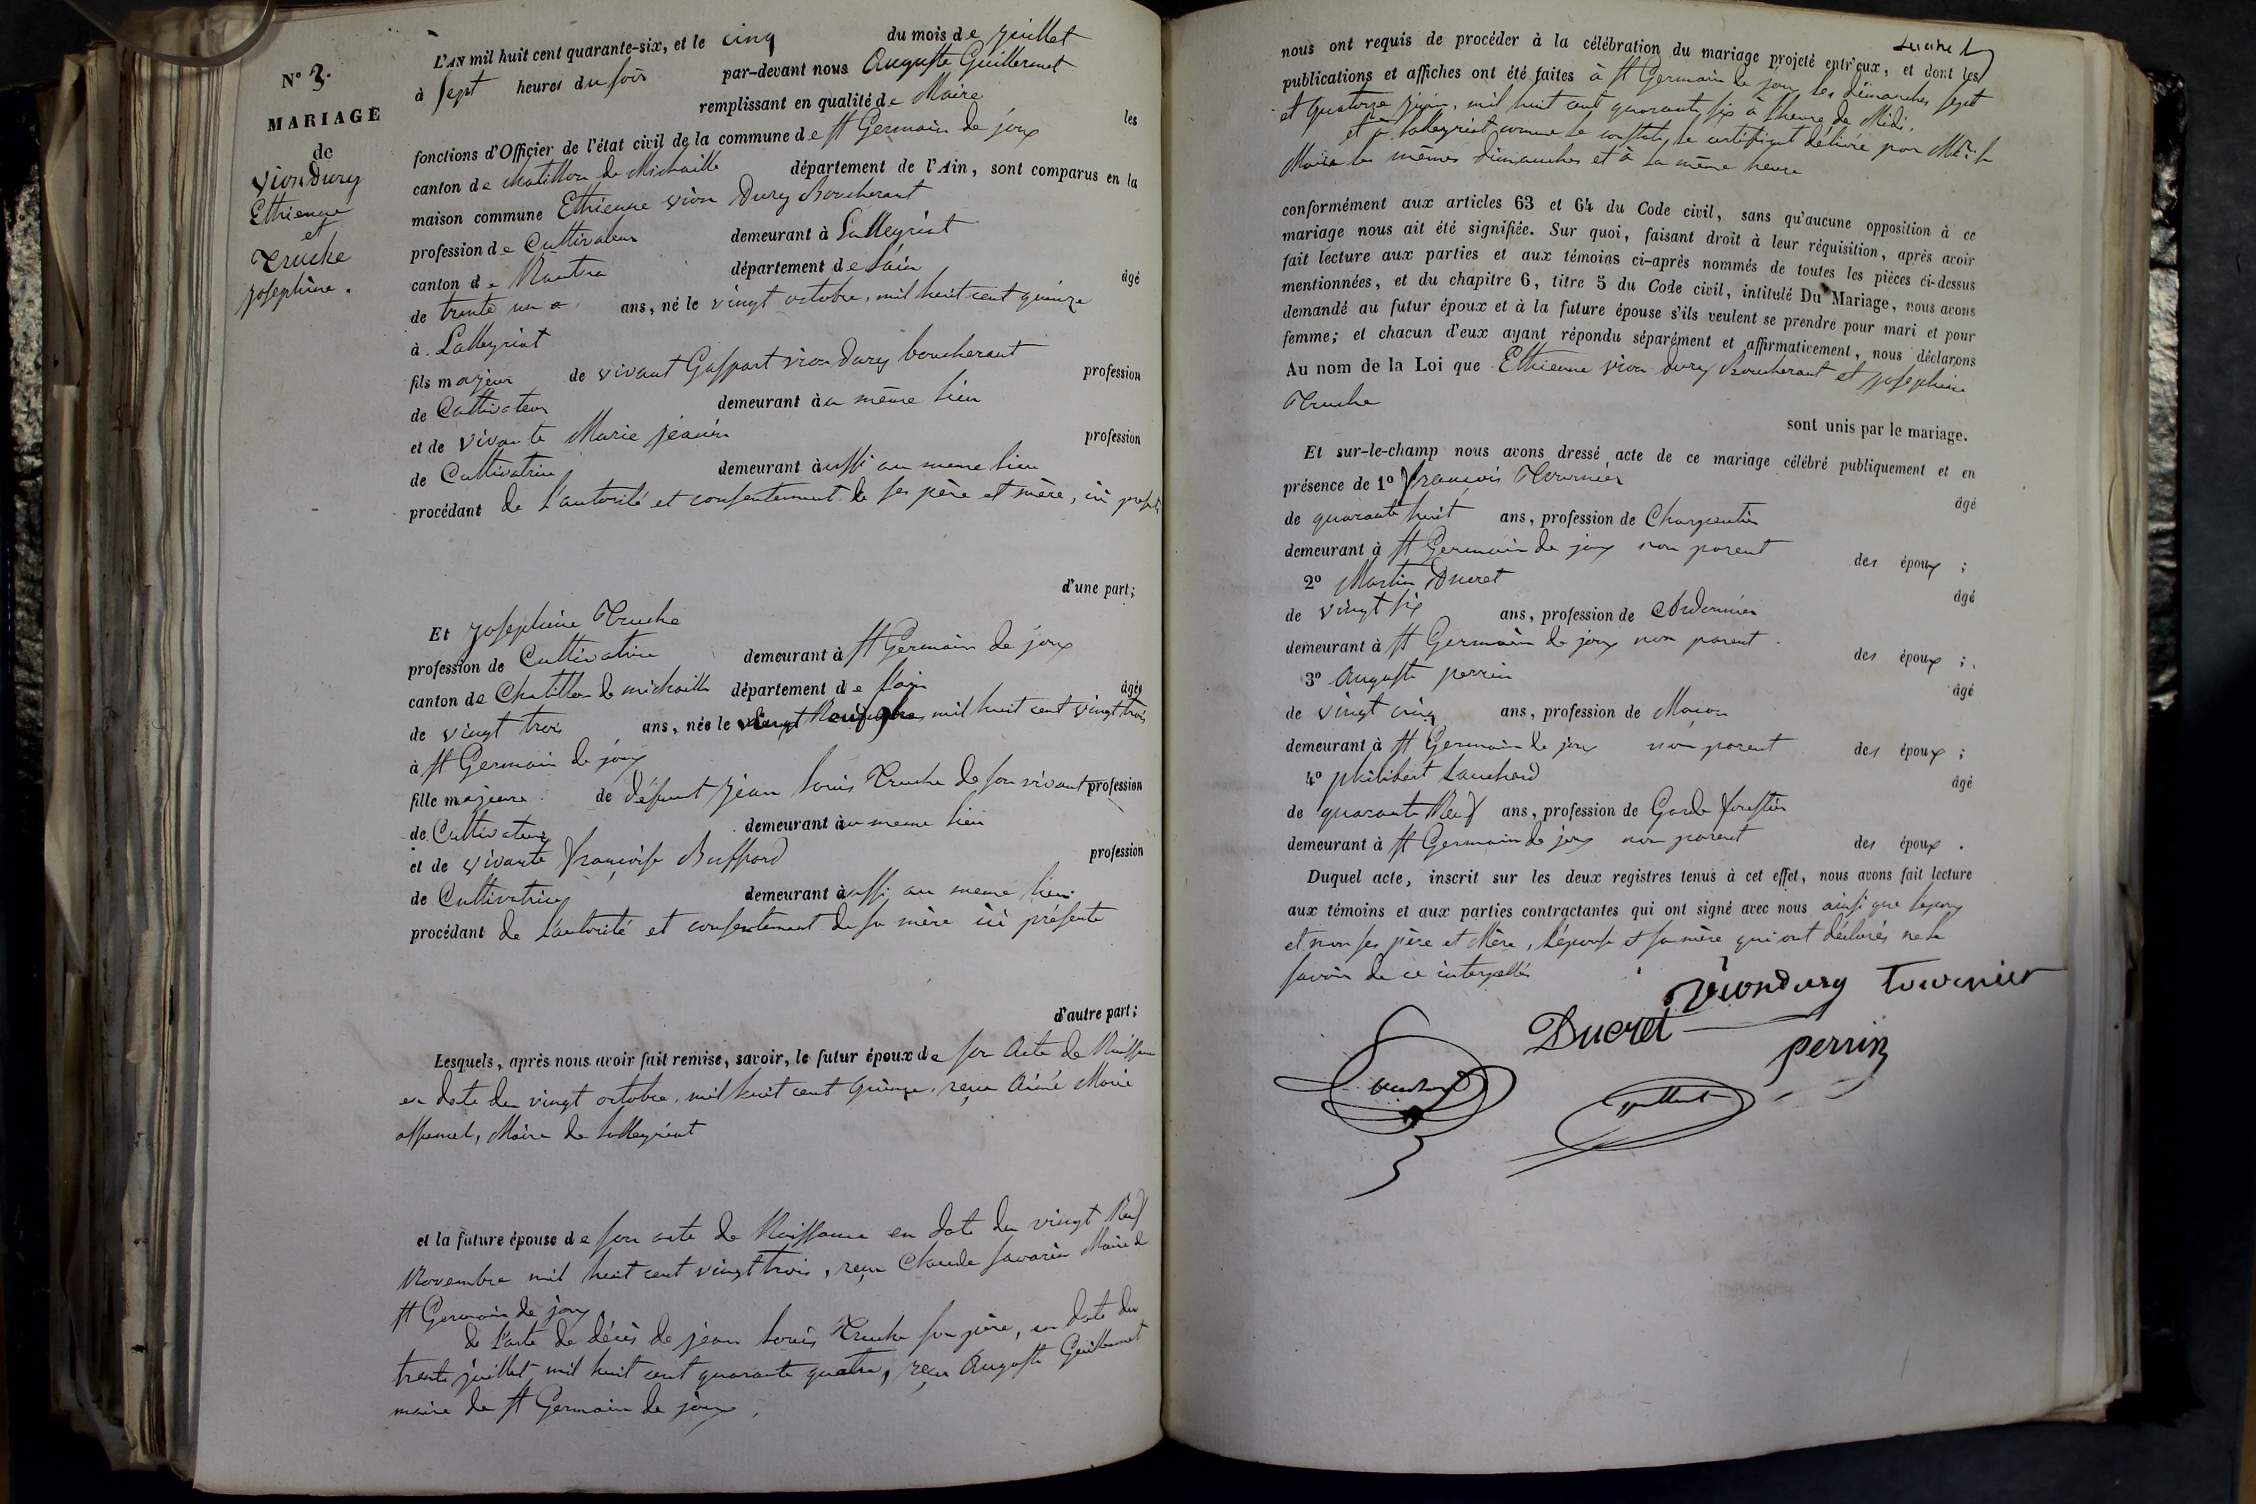 N° 3.
MARIAGE
de
Viondury
Ethienne
et
Truche
Josephine.
L'AN mil huit cent quarante-six, et le cinq du mois de juillet
à sept heures du soir par-devant nous Auguste Guillermet
remplissant en qualité de Maire les
fonctions d'Officier de l'état civil de la commune de St Germain de joux
canton de Chatillon de Michaille département de l'Ain, sont comparus en la
maison commune Ethienne Vion Dury Boucherant
profession de Cultivateur demeurant à Lalleyriat
canton de Nantua département de Lain âgé
de trente un ans, né le vingt octobre, mil huit cent quinze
à Lalleyriat
fils majeur de vivant Gaspart vion dury boucherant profession
de Cultivateur demeurant au même lieu
et de vivante Marie jeanin profession
de Cultivatrice demeurant aussi au meme lieu
procédant de l'autorité et consentement de ses père et mère, ici présents
d'une part;
Et Josephine Truche
profession de Cultivatrice demeurant à St Germain de joux
canton de Chatillon de michaille département de l'ain âgée
de vingt trois ans, née le vingt Neuf 9bre mil huit cent vingt trois
à St Germain de joux
fille majeure de défunt Jean Louis Truche de son vivant profession
de Cultivateur demeurant au meme lieu
et de vivante françoise Buffard profession
de Cultivatrice demeurant aussi au meme lieu
procédant de L'autorité et consentement de sa mère ici présente
d'autre part;
Lesquels, après nous avoir fait remise, savoir, le futur époux de son Acte de Naissance
en date du vingt octobre, mil huit cent quinze, reçu Aimé Marie
Maire de Lalleyriat
et la future épouse de son acte de Naissance en date du vingt Neuf
Novembre mil huit cent vingt trois, reçu Claude Savarin Maire de
St Germain de joux
de L'acte de décès de jean Louis Truche son père, en date du
trente juillet mil huit cent quarante quatre, reçu Auguste Guillermet
maire de St Germain de joux.
nous ont requis de procéder à la célébration du mariage projeté entr'eux, et dont les
publications et affiches ont été faites à St Germain de joux les dimanches sept
et quatorze juin, mil huit cent quarante six à l'heure de Midi,
et à Lalleyriat comme le constate le certificat délivré par Mr. le
Maire les mêmes dimanches et à la même heure
conformément aux articles 63 et 64 du Code civil, sans qu'aucune opposition à ce
mariage nous ait été signifiée. Sur quoi, faisant droit à leur réquisition, après avoir
fait lecture aux parties et aux témoins ci-après nommés de toutes les pièces ci-dessus
mentionnées, et du chapitre 6, titre 5 du Code civil, intitulé Du Mariage, nous avons
demandé au futur époux et à la future épouse s'ils veulent se prendre pour mari et pour
femme; et chacun d'eux ayant répondu séparément et affirmativement, nous déclarons
Au nom de la Loi que Ethienne vion dury boucherant et josephine
Truche
sont unis par le mariage.
Et sur-le-champ nous avons dressé acte de ce mariage célébré publiquement et en
présence de 1° François Tournier âgé
de quarante huit ans, profession de Charpentier
demeurant à St Germain de joux non parent des époux ;
2° Martin Ducret âgé
de vingt six ans, profession de Cordonnier
demeurant à St Germain de joux non parent des époux ;
3° Auguste perrin âgé
de vingt cinq ans, profession de Maçon
demeurant à St Germain de joux non parent des époux ;
4° philibert Lauchard âgé
de quarante Neuf ans, profession de Garde forestier
demeurant à St Germain de joux non parent des époux .
Duquel acte, inscrit sur les deux registres tenus à cet effet, nous avons fait lecture
aux témoins et aux parties contractantes qui ont signé avec nous ainsi que l'epoux
et non ses père et Mère, l'épouse et sa mère qui ont déclarés ne le
savoir de ce interpellés
Viondury Tournier
Ducret
perrin